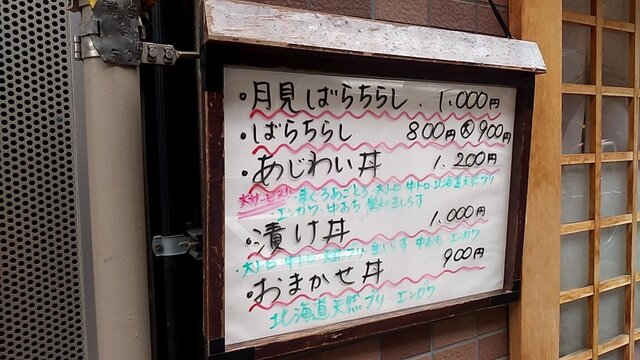 ・月見ばらちらし. 1.000円
・ばらちらし 800円 大 900円
・あじわい丼 1.200円
大サービス まぐろあごとろ・大トロ 中トロ 北海道天然ブリ
・エンガワ・中おち 生しらす
・漬け丼 1.000円
・大トロ 中トロ 天然ブリ 生しらす 中おち エンガワ
・おまかせ丼 900円
北海道天然ブリ・エンガワ